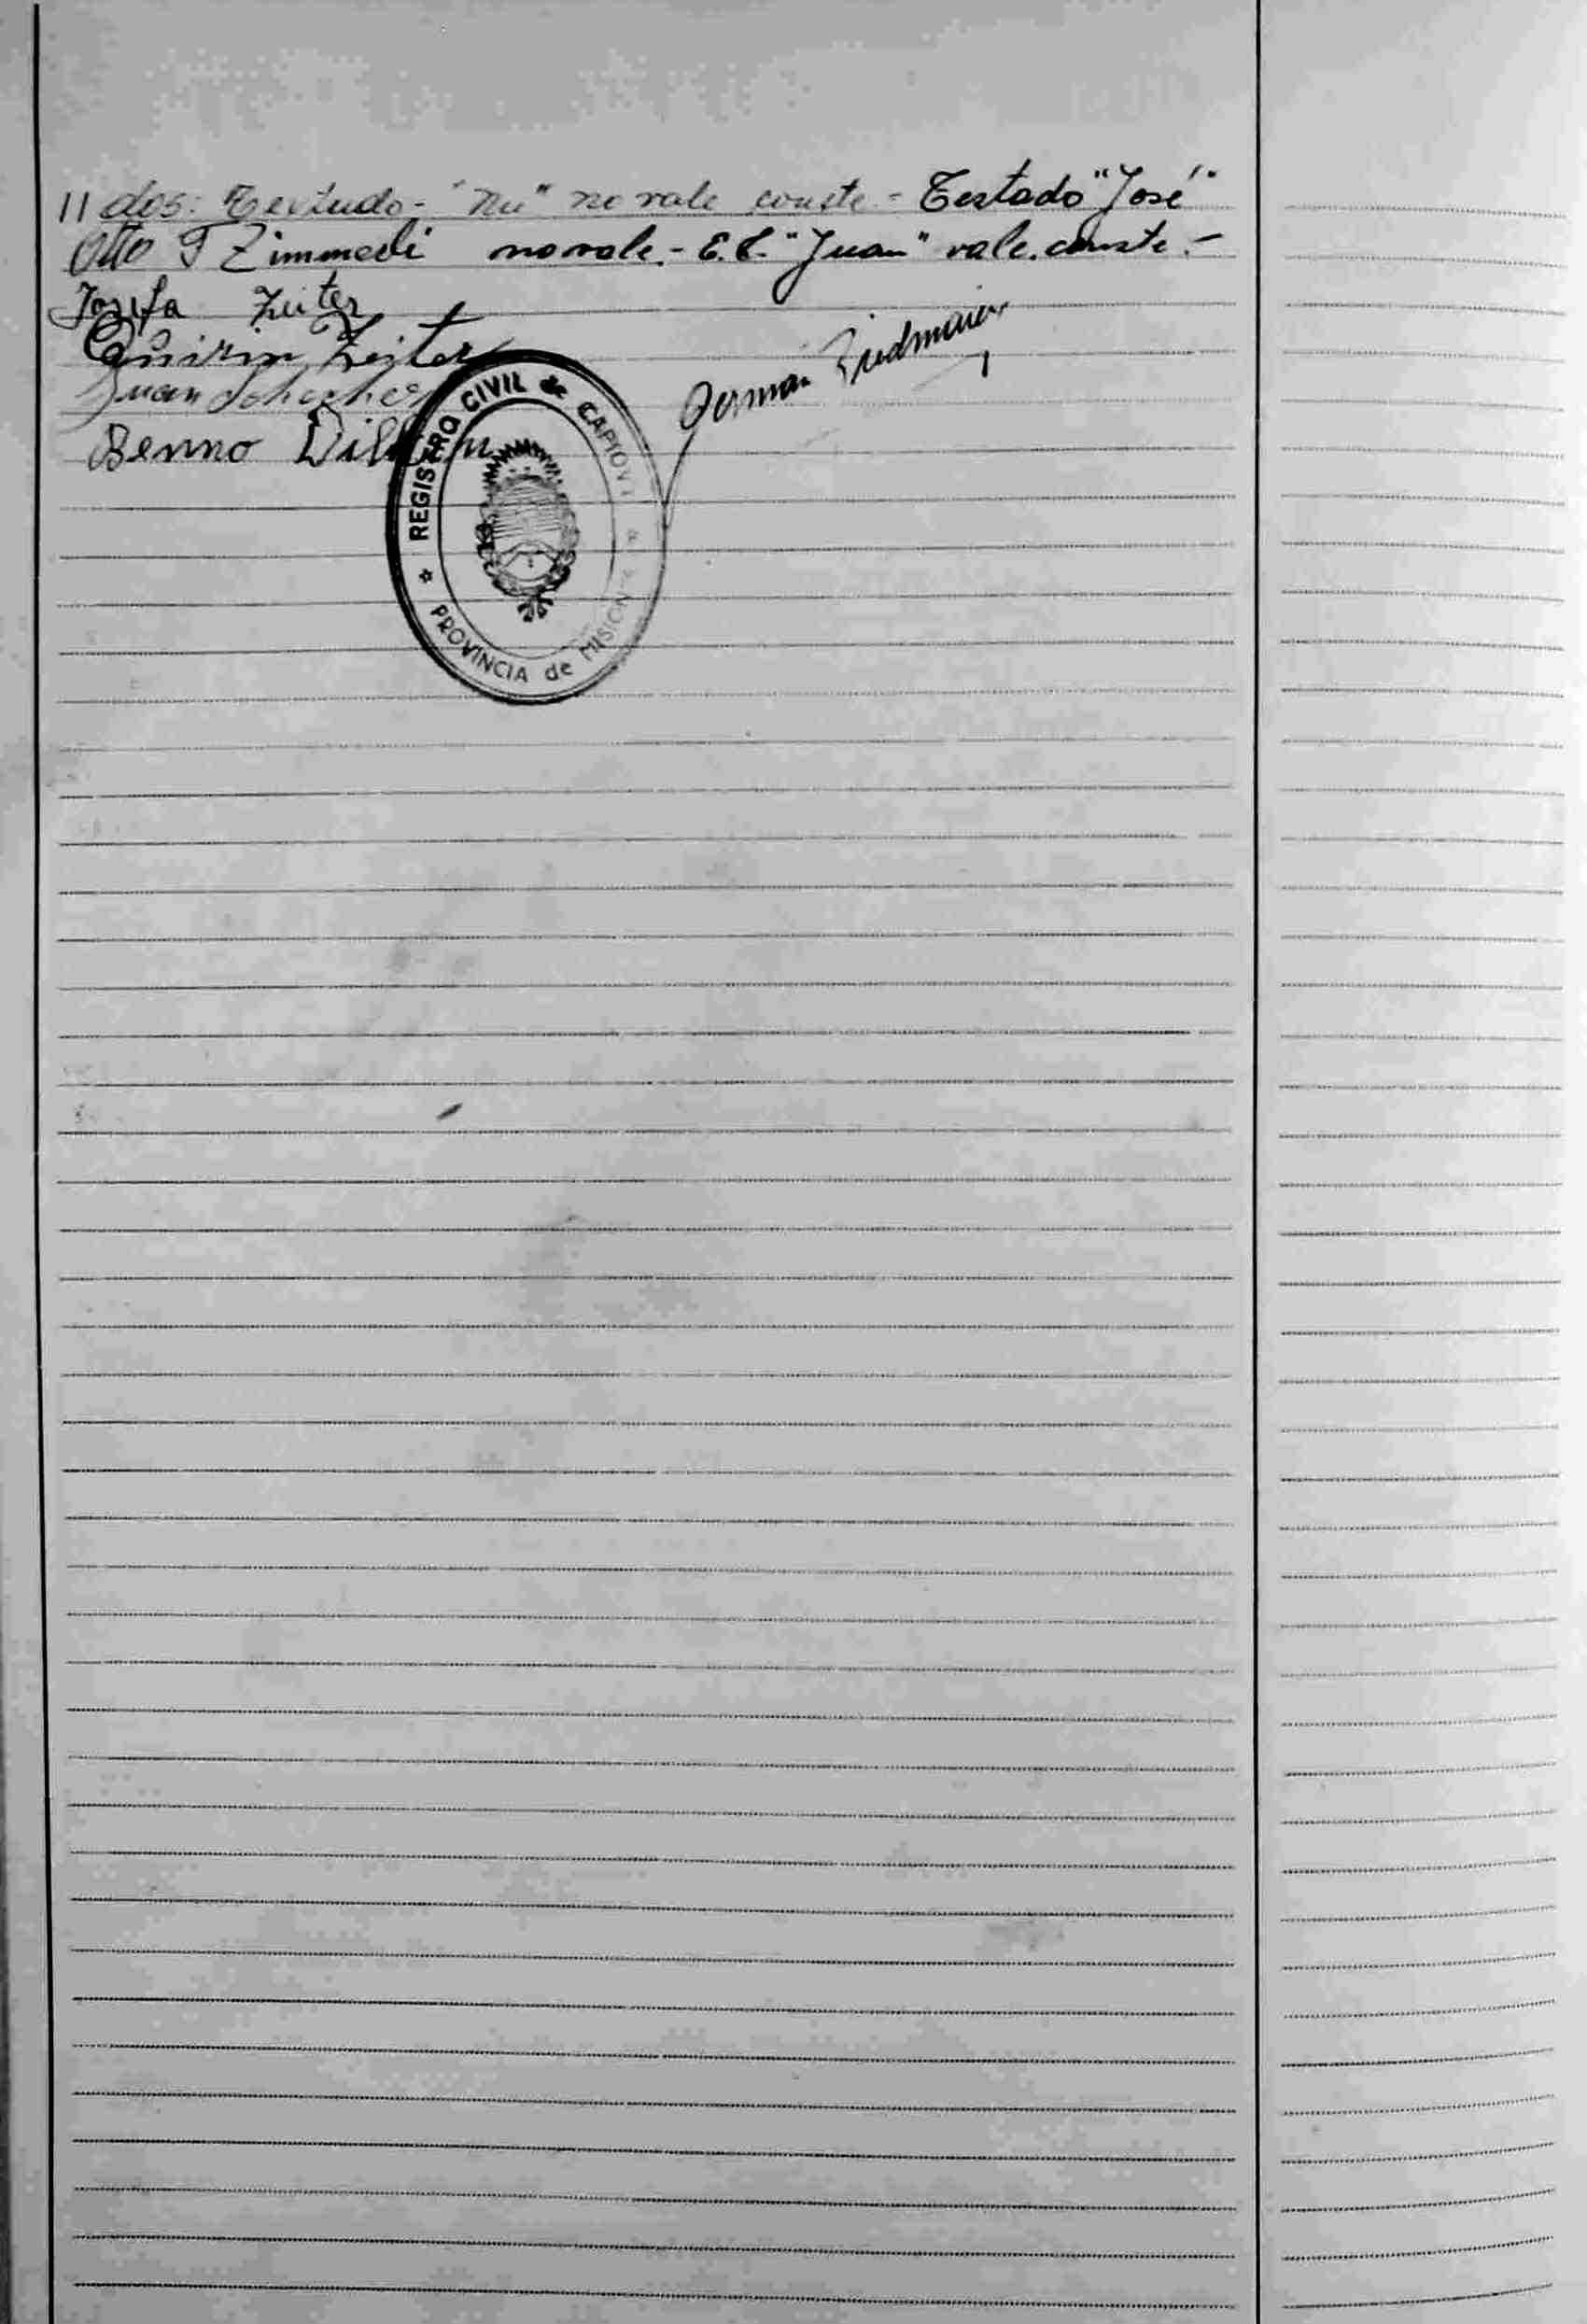 11 dos: Testado- "nu" no vale conste.- Testado "José"
Otto F Zimmedi no vale.- E.L. "Juan" vale. conste.-
Josefa Zeiter
Quirin Zeiter
Juan
Benno
German Riedmaier
REGISTRO CIVIL de CAPIOVI
PROVINCIA de MISIONES